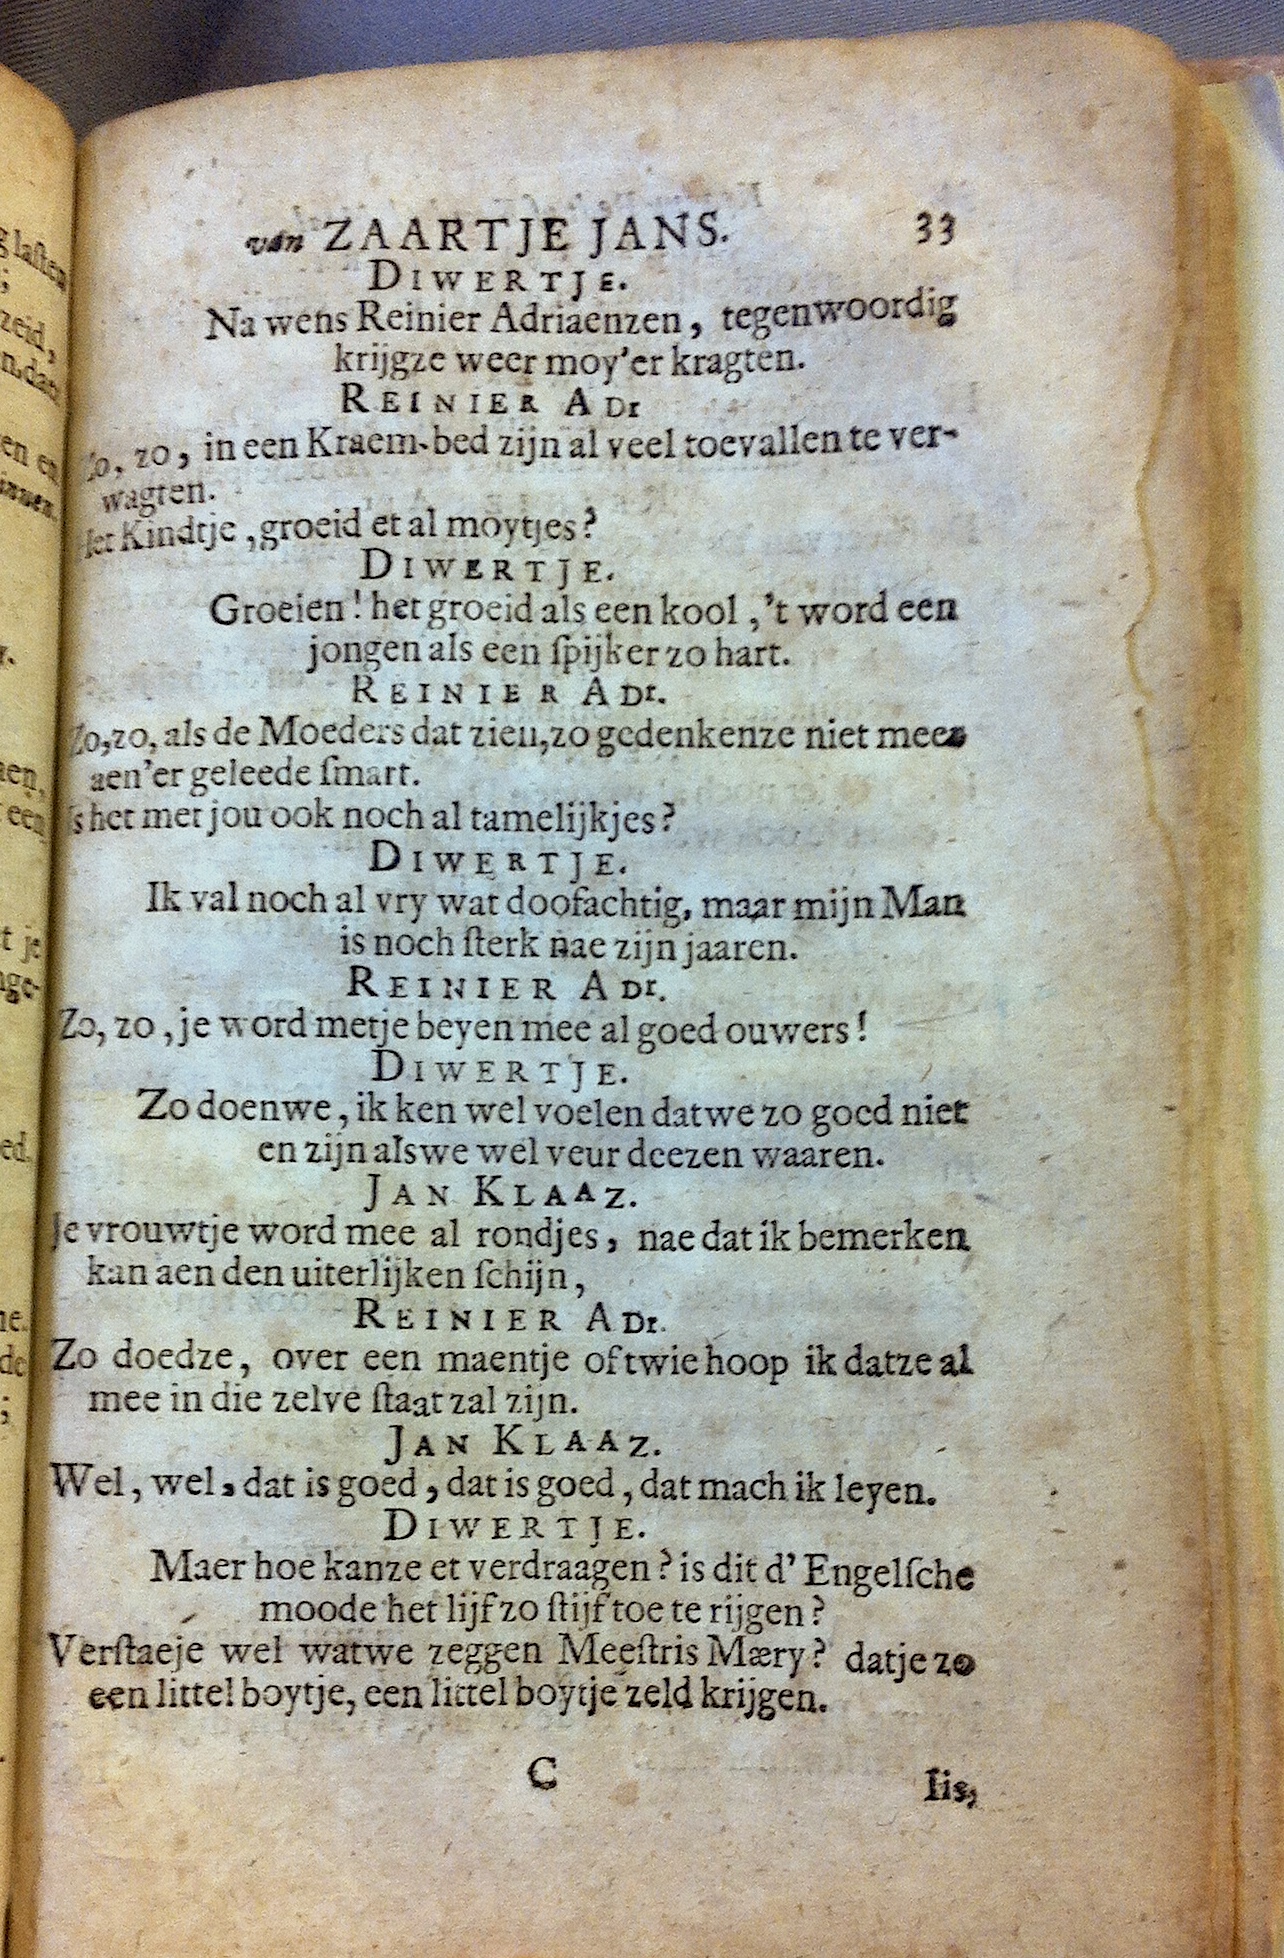 van ZAARTJE JANS. 33
DIWERTJE.
Na wens Reinier Adriaenzen, tegenwoordig
krijgze weer moy'er kragten.
REINIER ADr
Zo, zo, in een Kraem-bed zijn al veel toevallen te ver-
wagten.
Het Kindtje, groeid et al moytjes?
DIWERTJE.
Groeien! het groeid als een kool, 't word een
jongen als een ſpijker zo hart.
REINIER ADr.
Zo, zo, als de Moeders dat zien, zo gedenkenze niet meer
aen'er geleede ſmart.
Is het met jou ook noch al tamelijkjes?
DIWERTJE.
Ik val noch al vry wat doofachtig, maar mijn Man
is noch ſterk nae zijn jaaren.
REINIER ADr.
Zo, zo, je word metje beyen mee al goed ouwers!
DIWERTJE.
Zo doenwe, ik ken wel voelen datwe zo goed niet
en zijn alswe wel veur deezen waaren.
JAN KLAAZ.
Je vrouwtje word mee al rondjes, nae dat ik bemerken
kan aen den uiterlijken ſchijn,
REINIER ADr.
Zo doedze, over een maentje oftwie hoop ik datze al
mee in die zelve ſtaat zal zijn.
JAN KLAAZ.
Wel, wel, dat is goed, dat is goed, dat mach ik leyen.
DIWERTJE.
Maer hoe kanze et verdraagen? is dit d'Engelſche
moode het lijf zo ſtijf toe te rijgen?
Verſtaeje wel watwe zeggen Meeſtris Mæry? datje zo
een littel boytje, een littel boytje zeld krijgen.
C Iis,